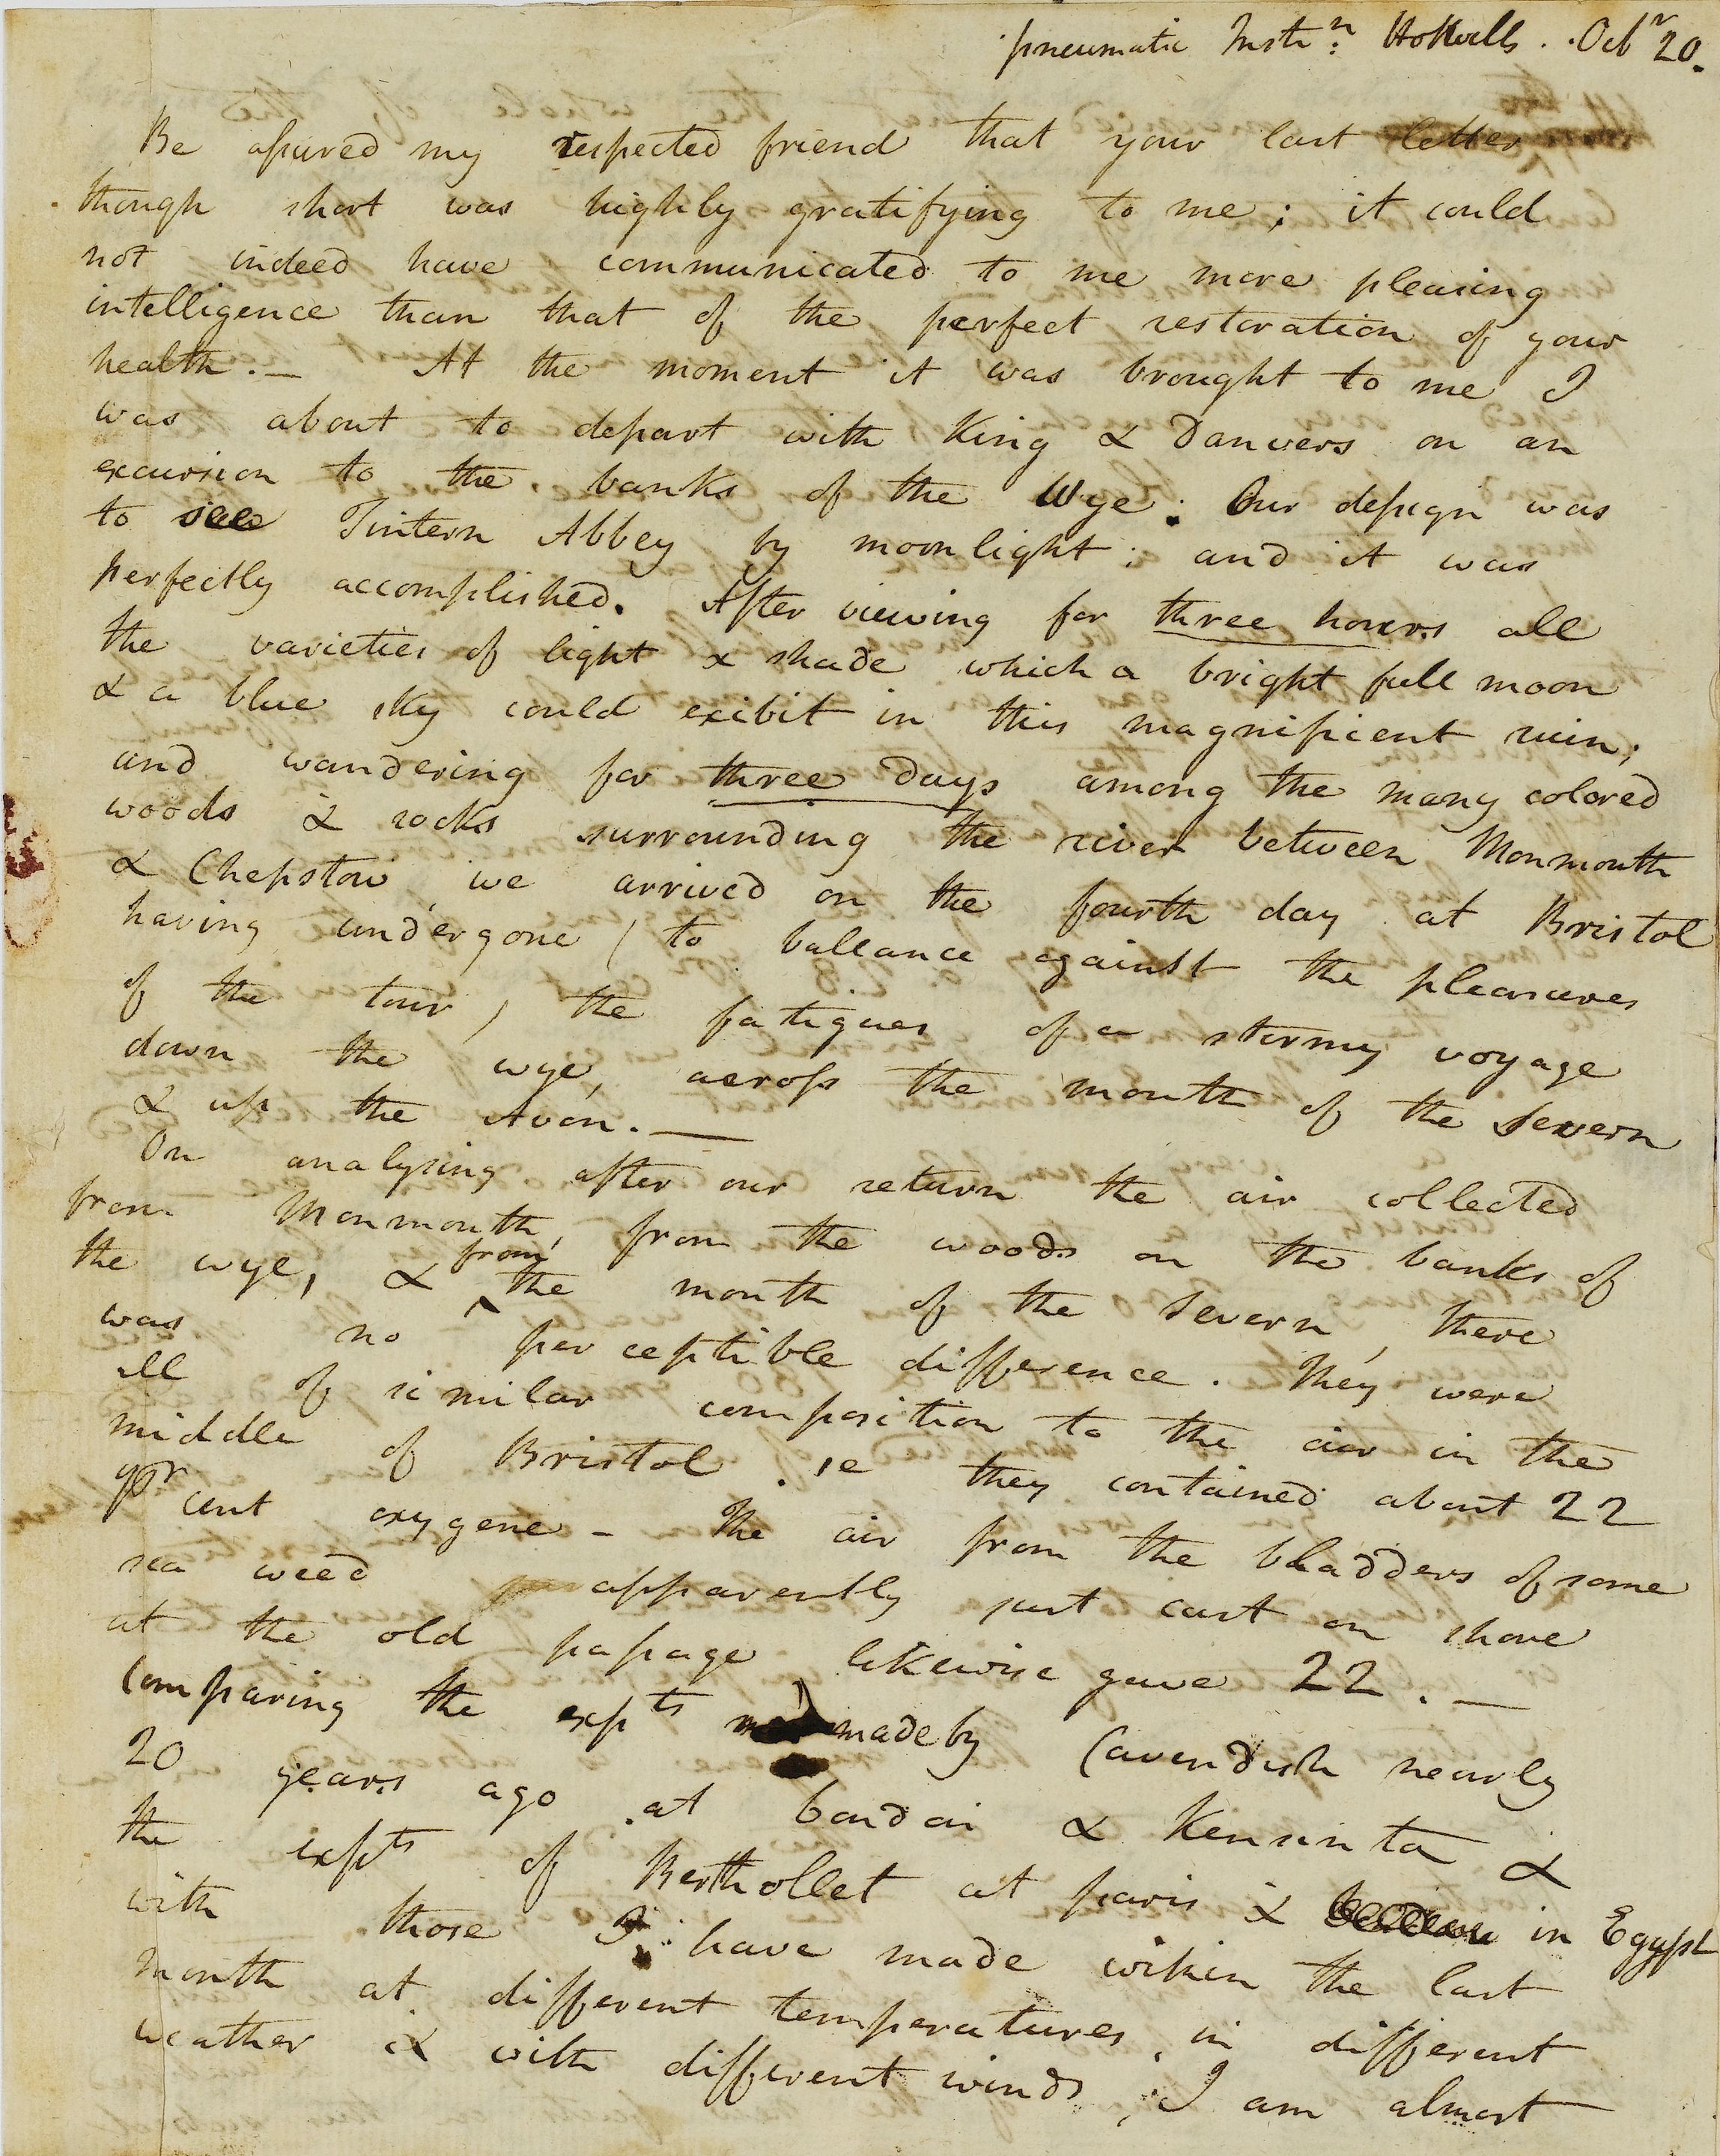 pneumatic Instn: Hotwells. Octr 20.
Be assured my respected friend that your last letter
though short was highly gratifying to me; it could
not indeed have communicated to me more pleasing
intelligence than that of the perfect restoration of your
health. — At the moment it was brought to me I
was about to depart with King & Danvers on an
excursion to the banks of the Wye. Our design was
to see Tintern Abbey by moonlight; and it was
perfectly accomplished. After viewing for three hours all
the varieties of light & shade which a bright full moon
& a blue sky could exibit in this magnificent ruin;
and wandering for three days among the many colored
woods & rocks surrounding the river between Monmouth
& Chepstow, we arrived on the fourth day at Bristol
having undergone (to ballance against the pleasures
of the tour) the fatigues of a stormy voyage
down the wye, across the mouth of the Severn
& up the Avon. —
On analysing after our return the air collected
from Monmouth, from the woods on the banks of
the wye, & from the mouth of the Severn, there
was no perceptible difference. They were
all of similar composition to the air in the
middle of Bristol. ie they contained about 22
pr cent oxygene – The air from the bladders of some
sea weed apparently just cast on shore
at the old passage likewise gave 22. —
Comparing the expts made by Cavendish nearly
20 years ago at London & Kensinton &
the expts of Berthollet at paris & in Egypt
with those I have made within the last
month at different temperatures, in different
weather & with different winds, I am almost